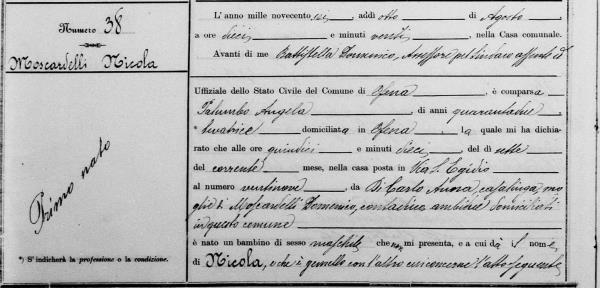 Numero 38
Moscardelli Nicola
Primo nato
*) S'indicherà la professione o la condizione.
L'anno mille novecento sei, addì otto di Agosto
a ore dieci e minuti venti, nella Casa comunale.
Avanti di me Battistella Domenico, Assessore pel Sindaco assente ed
Uffiziale dello Stato Civile del Comune di Ofena, è comparsa
Palumbo Angela, di anni quarantadue
* levatrice domiciliata in Ofena, la quale mi ha dichia-
rato che alle ore quindici e minuti dieci, del dì sette
del corrente mese, nella casa posta in Via S. Egidio
al numero ventinove, da Di Carlo Anna, casalinga mo-
glie di Moscardelli Domenico, contadino, ambidue domiciliati
in questo comune
è nato un bambino di sesso maschile che non mi presenta, e a cui dà il nome
di Nicola, e che è gemello con l'altro cui concerne l'atto seguente